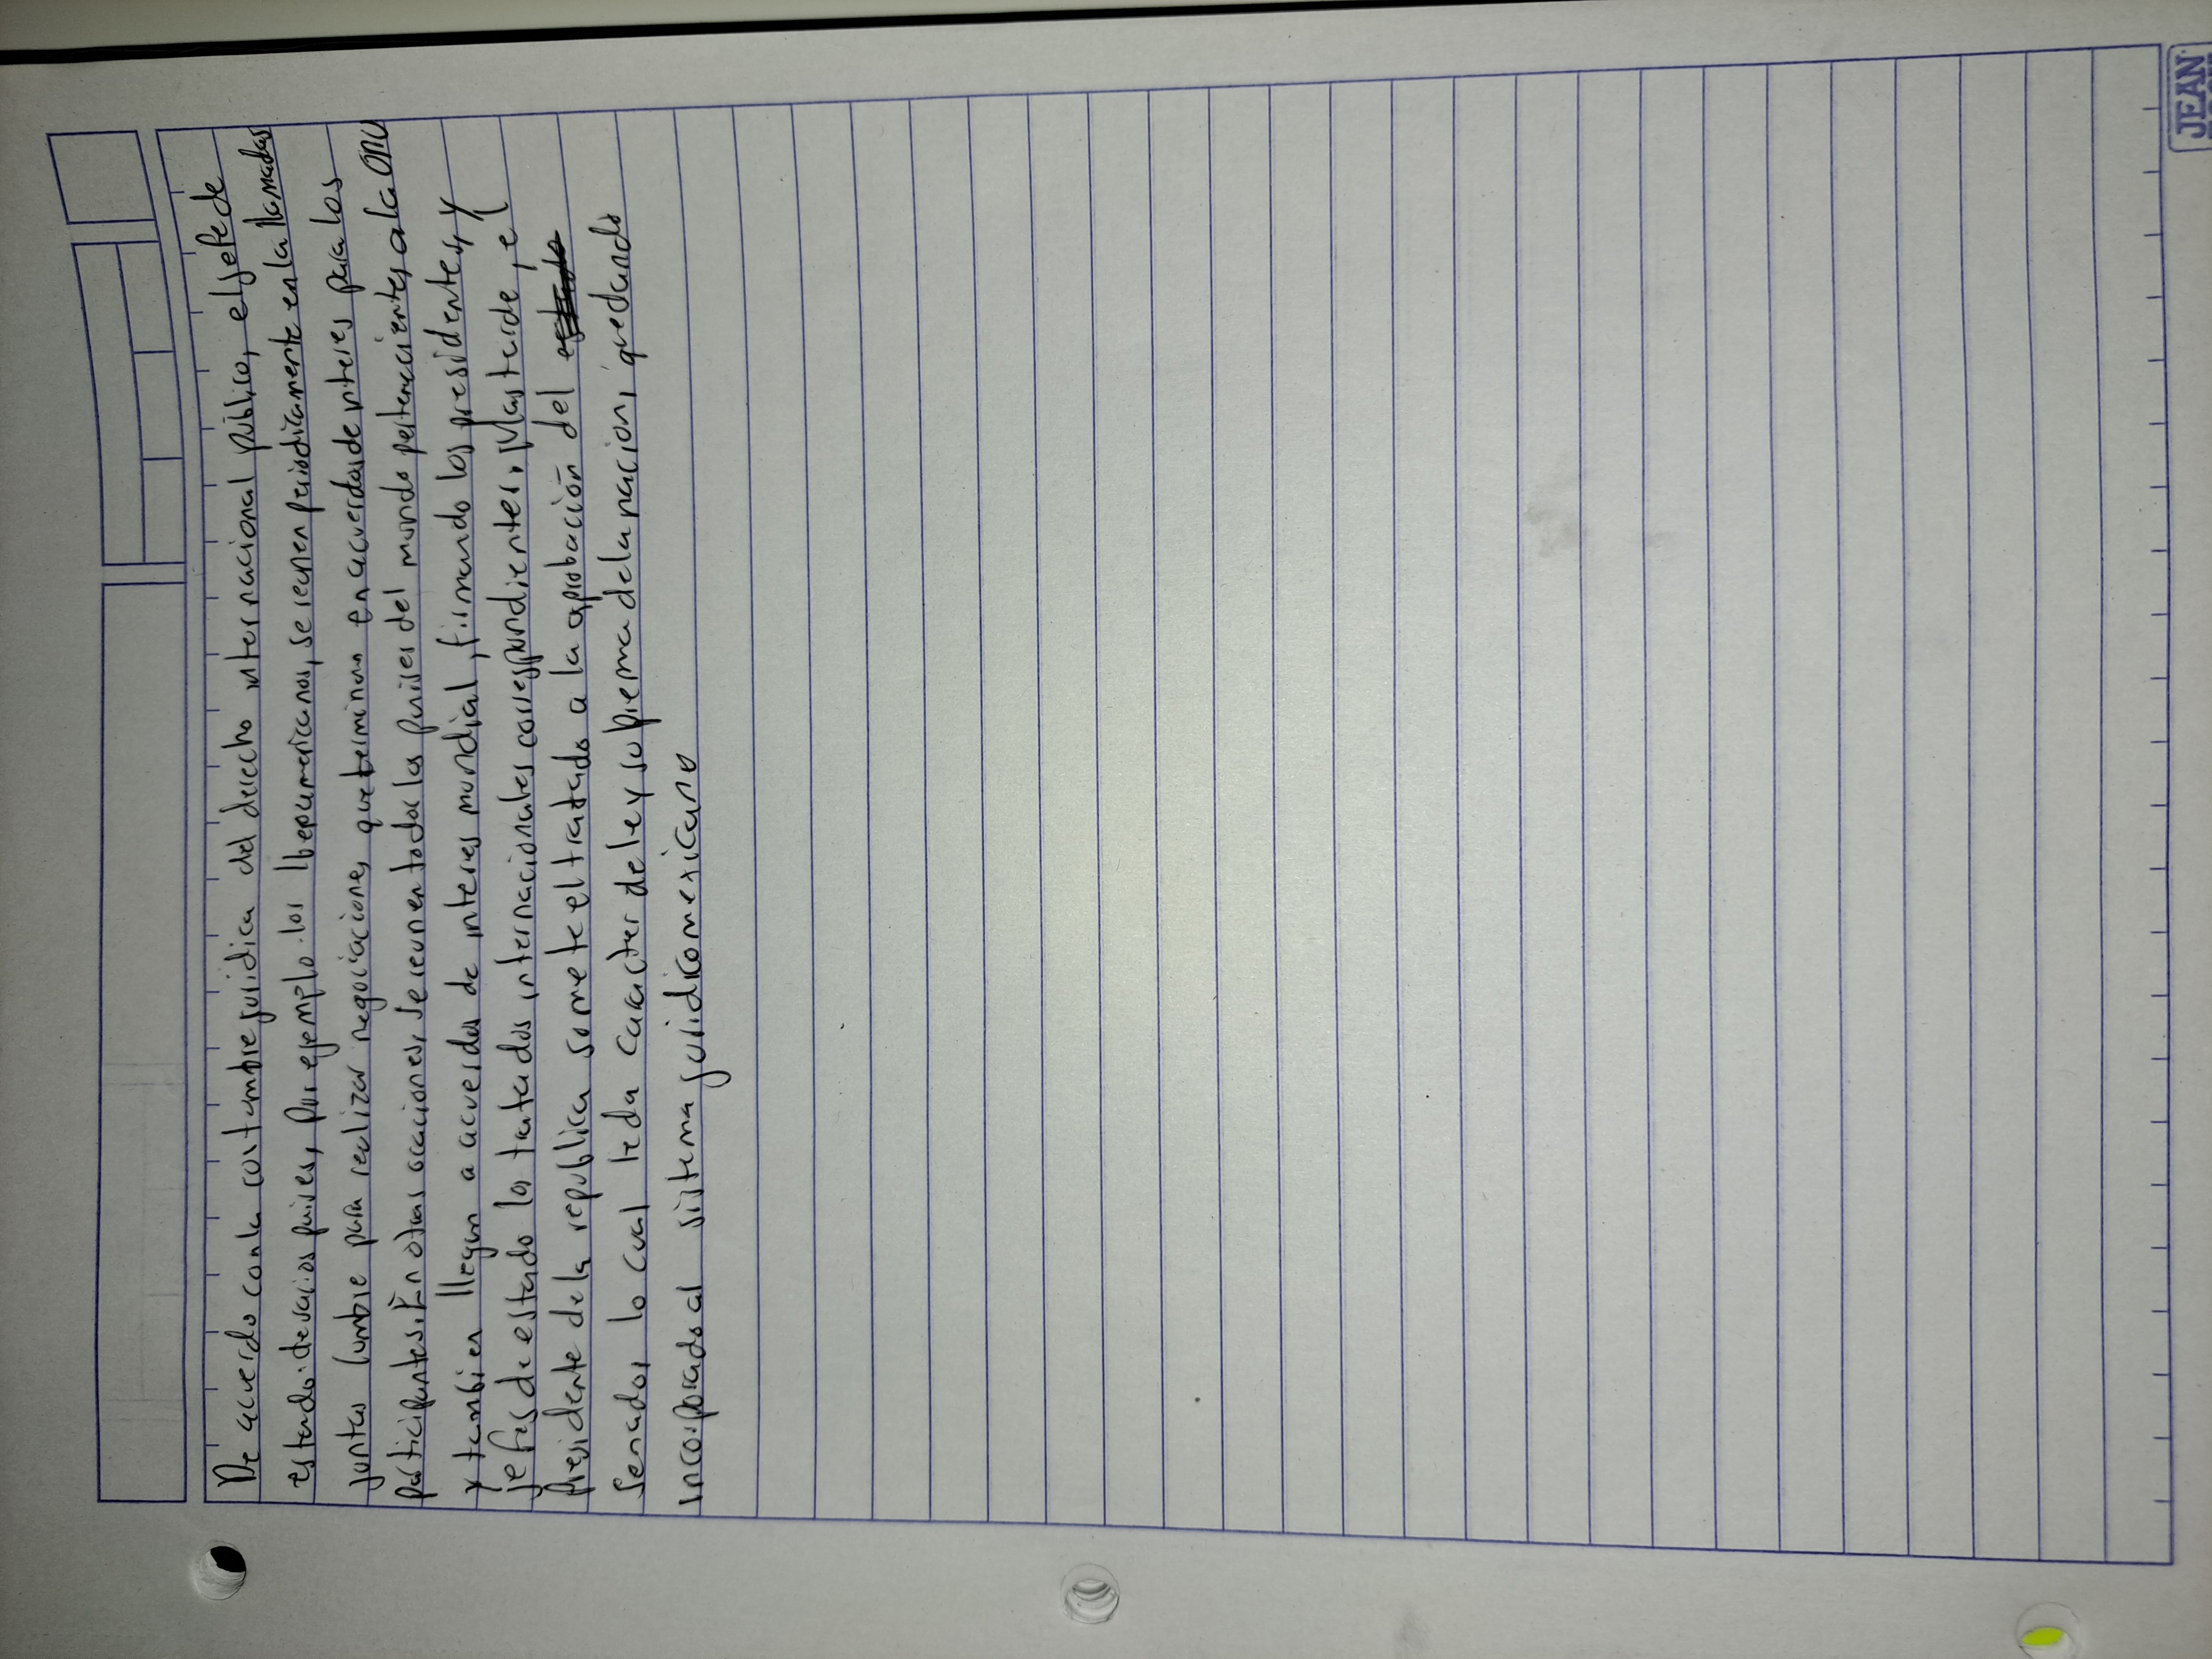 De acuerdo con la costumbre juridica del derecho internacional público, el jefe de
estado de varios paises, por ejemplo los Iberoamericanos, se reunen periodicamente en la llamadas
juntas cumbre para realizar negociaciones que terminan en acuerdos de interes para los
participantes. En otras ocaciones, se reunen todos los paises del mundo pertenecientes a la ONU
y tambien llegan a acuerdos de interes mundial, firmando los presidentes y
jefes de estado los tratados internacionales correspondientes. Mas tarde, el
presidente de la republica somete el tratado a la aprobación del
Senado, lo cual le da caracter de ley suprema de la nacion, quedando
incorporado al sistema juridico mexicano
JEAN